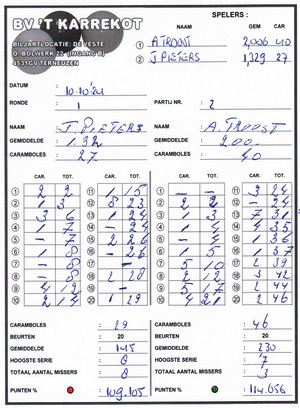 BV 'T KARREKOT
BILJARTLOCATIE: DE VESTE
O. BOLWERK 22 (INGANG B)
4531GV TERNEUZEN
SPELERS :
NAAM GEM CAR
1 A TROOST 2,006 40
2 J PIETERS 1,329 27
DATUM : 10.10.'24
RONDE : 1 PARTIJ NR. : 2
NAAM : J. PIETERS NAAM : A. TROOST
GEMIDDELDE : 1.32 GEMIDDELDE : 200
CARAMBOLES : 27 CARAMBOLES : 40
CAR. TOT. CAR. TOT. CAR. TOT. CAR. TOT.
1 2 2 11 1 15 1 - - 11 3 24
2 1 3 12 8 23 2 2 2 12 - 24
3 3 6 13 1 24 3 1 3 13 7 31
4 1 7 14 - 24 14 4 35
5 - 7 15 2 26 15 1 36
6 16 - 26 16 1 37
7 - 8 17 7 5 10 17 2 39
8 - 8 18 2 28 8 2 12 18 3 42
9 4 12 19 - 9 5 17 19 2 44
10 2 14 20 1 29 10 4 21 20 2 46
CARAMBOLES : 29 CARAMBOLES : 46
BEURTEN : 20 BEURTEN : 20
GEMIDDELD : 145 GEMIDDELD : 230
HOOGSTE SERIE : 8 HOOGSTE SERIE : 7
TOTAAL AANTAL MISSERS : 8 TOTAAL AANTAL MISSERS : 3
PUNTEN % : 109.105 PUNTEN % : 114.656